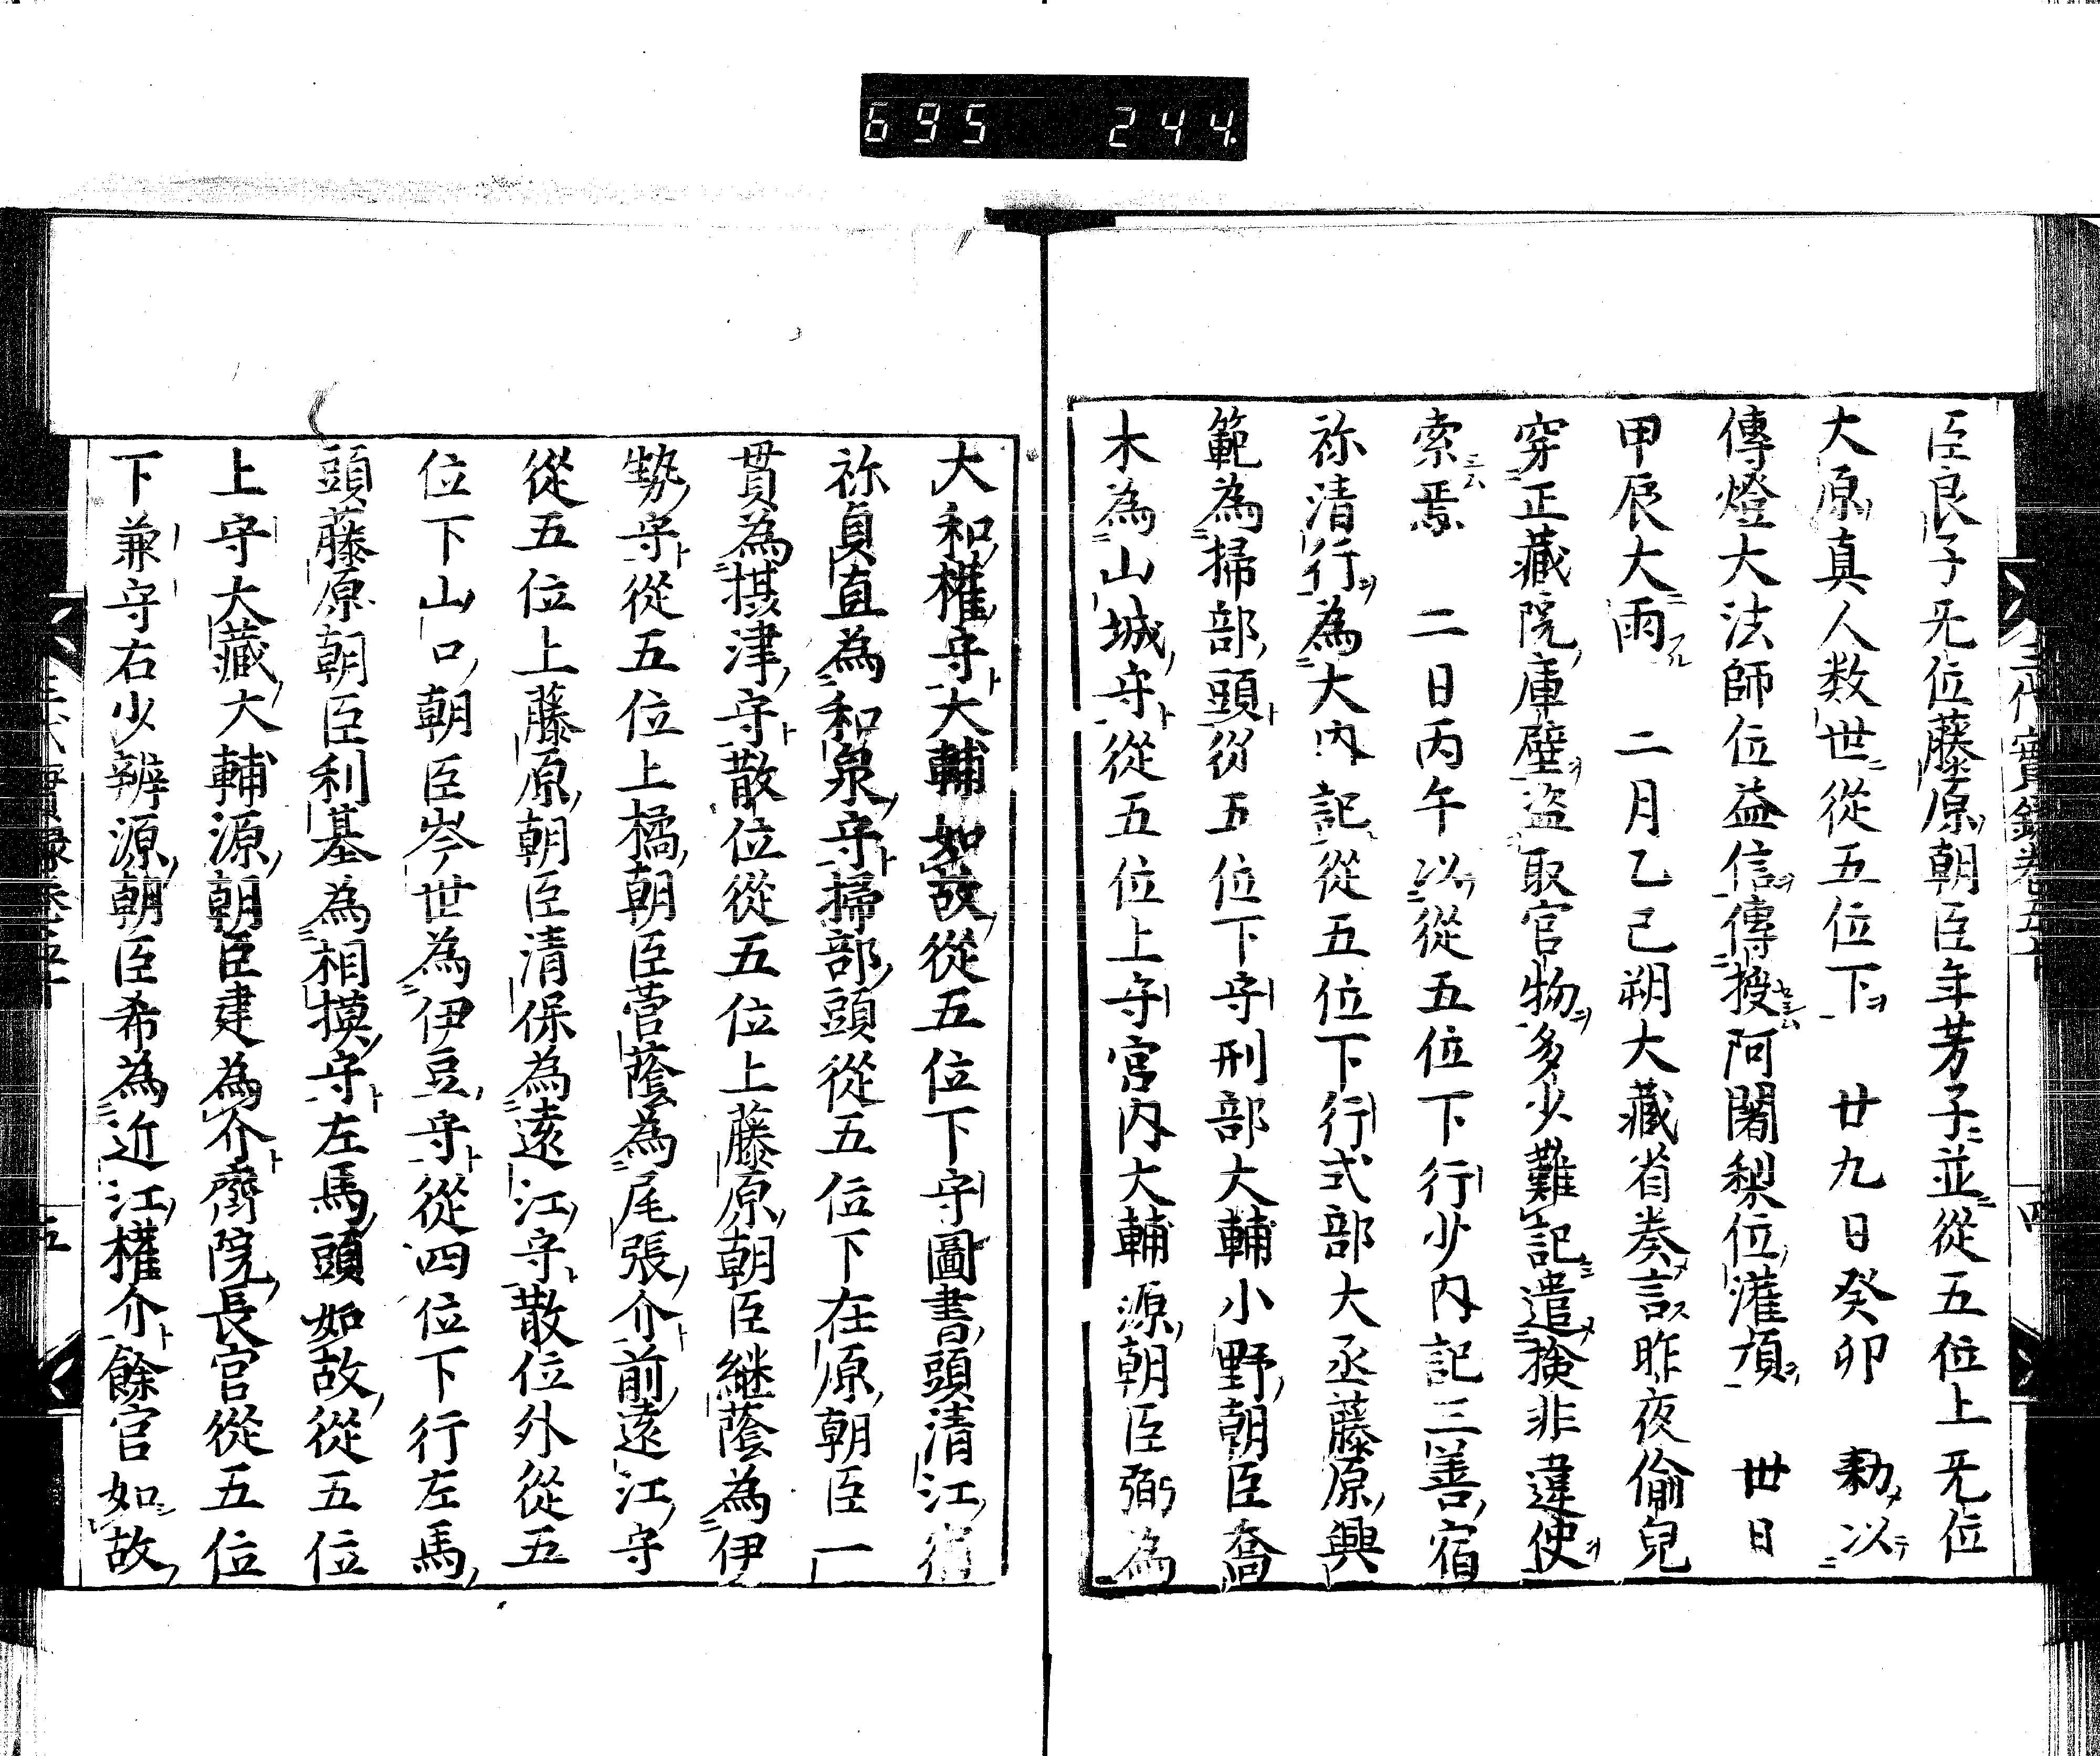 695 244
臣良子无位藤原朝臣年芳子並從五位上无位
大原真人数世從五位下 廿九日癸卯 勅以
傳燈大法師位益信傳授阿闍梨位灌頂 丗日
甲辰大雨 二月乙已朔大藏省奏言昨夜偷兒
穿正藏院庫壁盜取官物多少難記遣檢非違使
索焉 二日丙午以從五位下行少内記三善宿
祢清行為大内記從五位下行式部大丞藤原興
範為掃部頭從五位下守刑部大輔小野朝臣喬
木為山城守從五位上守宮内大輔源朝臣弼為
大和權守大輔如故從五位下守圖書頭清江宿
祢貞直為和泉守掃部頭從五位下在原朝臣一
貫為摂津守散位從五位上藤原朝臣継蔭為伊
勢守從五位上橘朝臣菅蔭為尾張介前遠江守
從五位上藤原朝臣清保為遠江守散位外從五
位下山口朝臣岑世為伊豆守從四位下行左馬
頭藤原朝臣利基為相摸守左馬頭如故從五位
上守大藏大輔源朝臣建為介齋院長官從五位
下兼守右少辨源朝臣希為近江權介餘官如故
三代實錄卷五十
四
三代實録卷五十
五